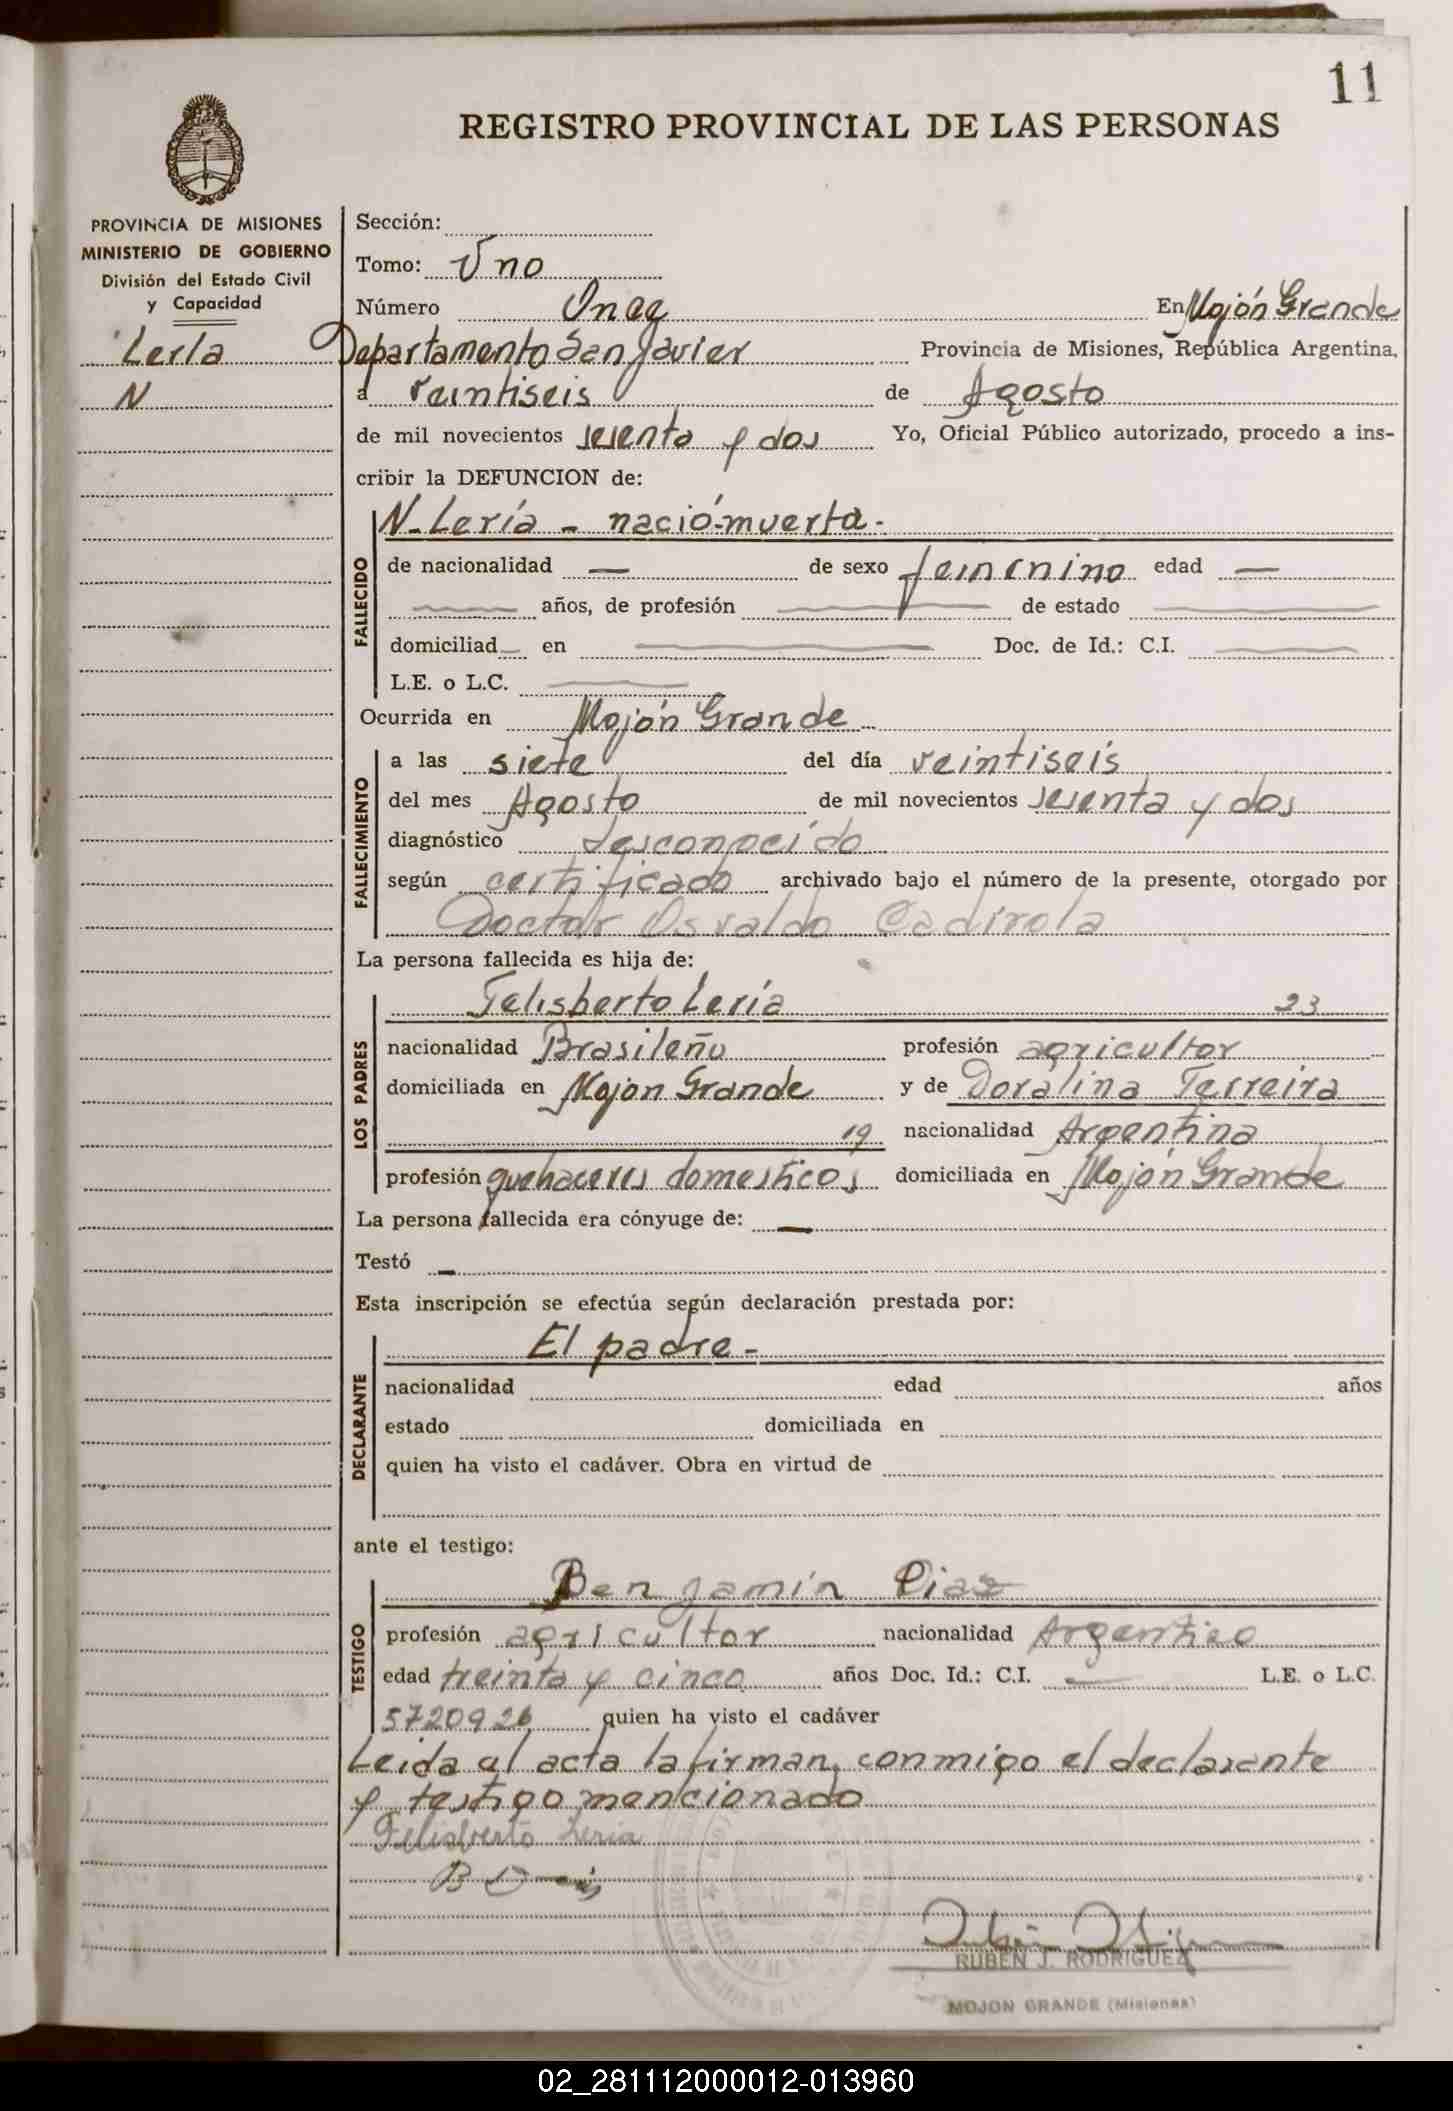 11
REGISTRO PROVINCIAL DE LAS PERSONAS
PROVINCIA DE MISIONES
MINISTERIO DE GOBIERNO
División del Estado Civil
y Capacidad
Lería
N
Sección:
Tomo: Uno
Número Once En Mojón Grande
Departamento San Javier Provincia de Misiones, República Argentina,
a veintiseis de Agosto
de mil novecientos sesenta y dos Yo, Oficial Público autorizado, procedo a ins-
cribir la DEFUNCION de:
FALLECIDO
N- Lería - nació muerta -
de nacionalidad — de sexo femenino edad —
años, de profesión de estado
domiciliad en Doc. de Id.: C.I.
L.E. o L.C.
Ocurrida en Mojón Grande
FALLECIMIENTO
a las siete del día veintiseis
del mes Agosto de mil novecientos sesenta y dos
diagnóstico desconocido
según certificado archivado bajo el número de la presente, otorgado por
Doctor Osvaldo Cadirola
La persona fallecida es hija de:
LOS PADRES
Felisberto Lería 23
nacionalidad Brasileño profesión agricultor
domiciliada en Mojon Grande y de Doralina Ferreira
19 nacionalidad Argentina
profesión quehaceres domesticos domiciliada en Mojón Grande
La persona fallecida era cónyuge de: —
Testó —
Esta inscripción se efectúa según declaración prestada por:
DECLARANTE
El padre -
nacionalidad edad años
estado domiciliada en
quien ha visto el cadáver. Obra en virtud de
ante el testigo:
TESTIGO
Benjamín Diaz
profesión agricultor nacionalidad Argentino
edad treinta y cinco años Doc. Id.: C.I. — L.E. o L.C.
5720926 quien ha visto el cadáver
Leida el acta la firman, conmigo el declarante
y testigo mencionado
Felisberto Leria
RUBEN J. RODRIGUEZ
MOJON GRANDE (Misiones)
02_281112000012-013960